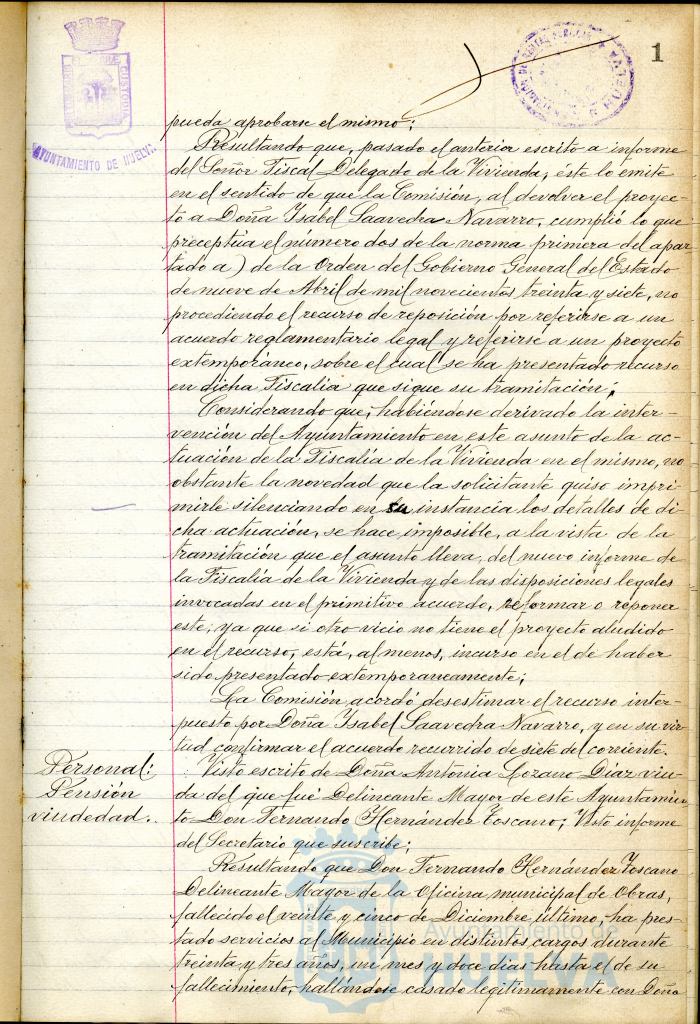 1
AYUNTAMIENTO DE HUELVA
pueda aprobarse el mismo;
Resultando que, pasado el anterior escrito a informe
del Señor Fiscal Delegado de la Vivienda, éste lo emite
en el sentido de que la Comisión, al devolver el proyec-
to a Doña Isabel Saavedra Navarro, cumplió lo que
preceptúa el número dos de la norma primera del apar-
tado a) de la Orden del Gobierno General del Estado
de nueve de Abril de mil novecientos treinta y siete, no
procediendo el recurso de reposición por referirse a un
acuerdo reglamentario legal y referirse a un proyecto
extemporáneo, sobre el cual se ha presentado recurso
en dicha Fiscalía que sigue su tramitación;
Considerando que, habiéndose derivado la inter-
vención del Ayuntamiento en este asunto de la ac-
tuación de la Fiscalía de la Vivienda en el mismo, no
obstante la novedad que la solicitante quiso impri-
mirle silenciando en su instancia los detalles de di-
cha actuación, se hace imposible, a la vista de la
tramitación que el asunto lleva, del nuevo informe de
la Fiscalía de la Vivienda y de las disposiciones legales
invocadas en el primitivo acuerdo, reformar o reponer
éste; ya que si otro vicio no tiene el proyecto aludido
en el recurso, está, al menos, incurso en el de haber
sido presentado extemporaneamente;
La Comisión acordó desestimar el recurso inter-
puesto por Doña Isabel Saavedra Navarro, y en su vir-
tud confirmar el acuerdo recurrido de siete del corriente.
Personal:
Pensión
viudedad.
Visto escrito de Doña Antonia Lozano Díaz viu-
da del que fué Delineante Mayor de este Ayuntamien-
to Don Fernando Hernández Toscano; Visto informe
del Secretario que suscribe;
Resultando que Don Fernando Hernández Toscano
Delineante Mayor de la Oficina municipal de Obras,
fallecido el veinte y cinco de Diciembre último, ha pres-
tado servicios al Municipio en distintos cargos durante
treinta y tres años, un mes y doce días hasta el de su
fallecimiento, hallándose casado legítimamente con Doña
Ayuntamiento de
HUELVA